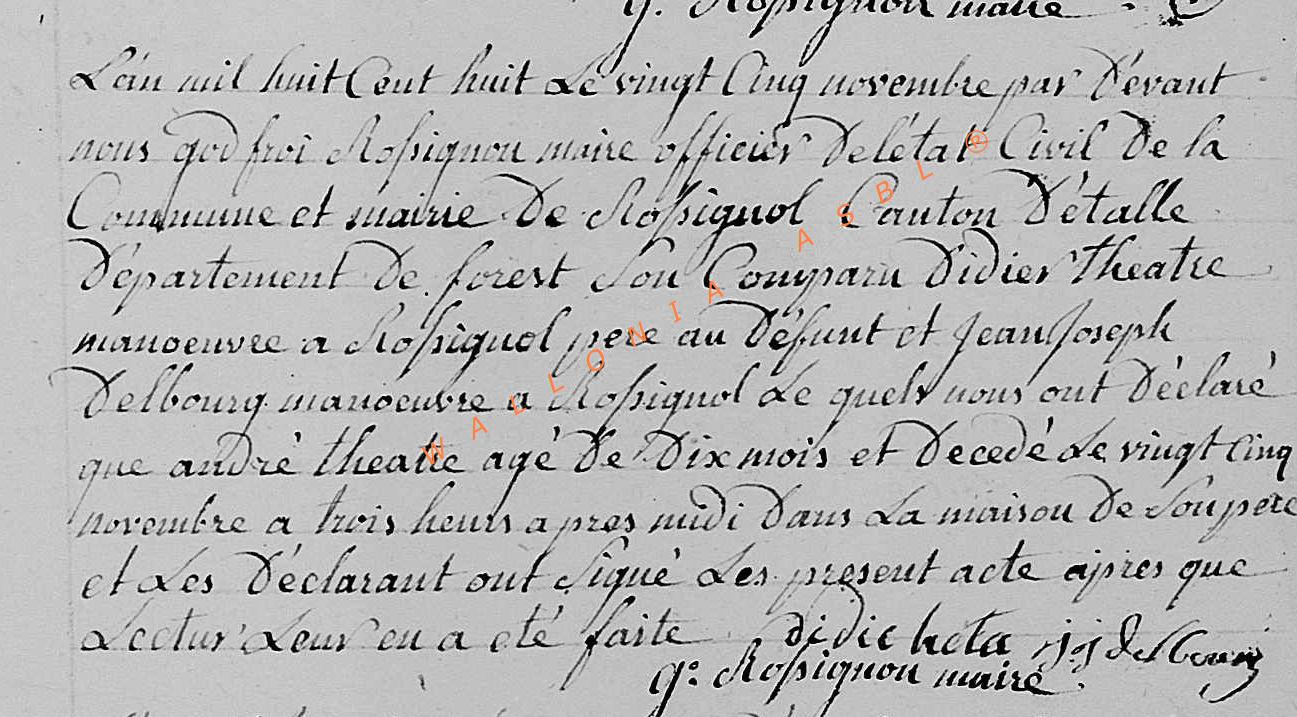 g. Rossignon maire
L'an mil huit Cent huit Le vingt Cinq novembre par D'evant
nous godfroi Rossignon maire officier De l'état Civil De la
Commune et mairie De Rossignol Canton D'étalle
Département De forest Son Comparu Didier theatre
manoeuvre a Rossignol pere au Défunt et Jean Joseph
Delbourg manoeuvre a Rossignol Le quels nous ont Déclaré
que andré theatre agé De Dix mois et Decedé Le vingt Cinq
novembre a trois heurs apres midi Dans La maison De Son pere
et Les Déclarant ont Signé Les present acte apres que
Lectur Leur en a eté faite didie heta j j delbourg
g: Rossignon maire
WALLONIA ASBL ®